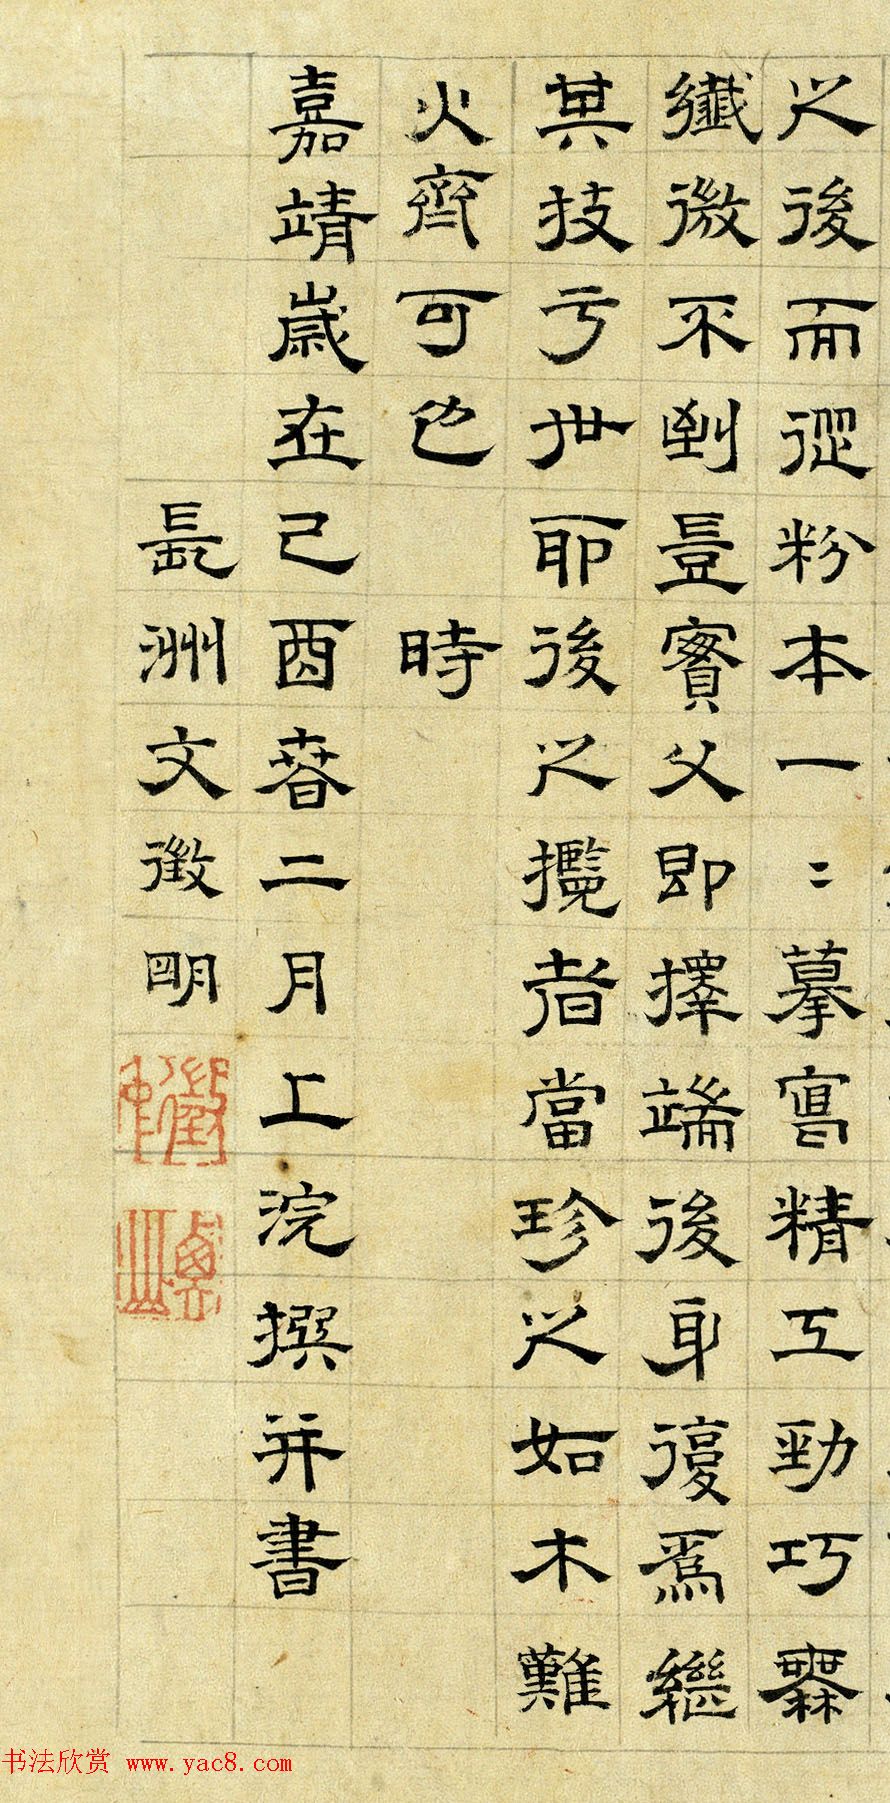 之後而從粉本一〻摹寫精工勁巧無
纖微不到豈實父即擇端後身復為繼
其技亏世耶後之攬者當珍之如木難
火齊可也 時
嘉靖歲在己酉春二月上浣撰并書
長洲文徵明
徵明
书法欣赏 www.yac8.com